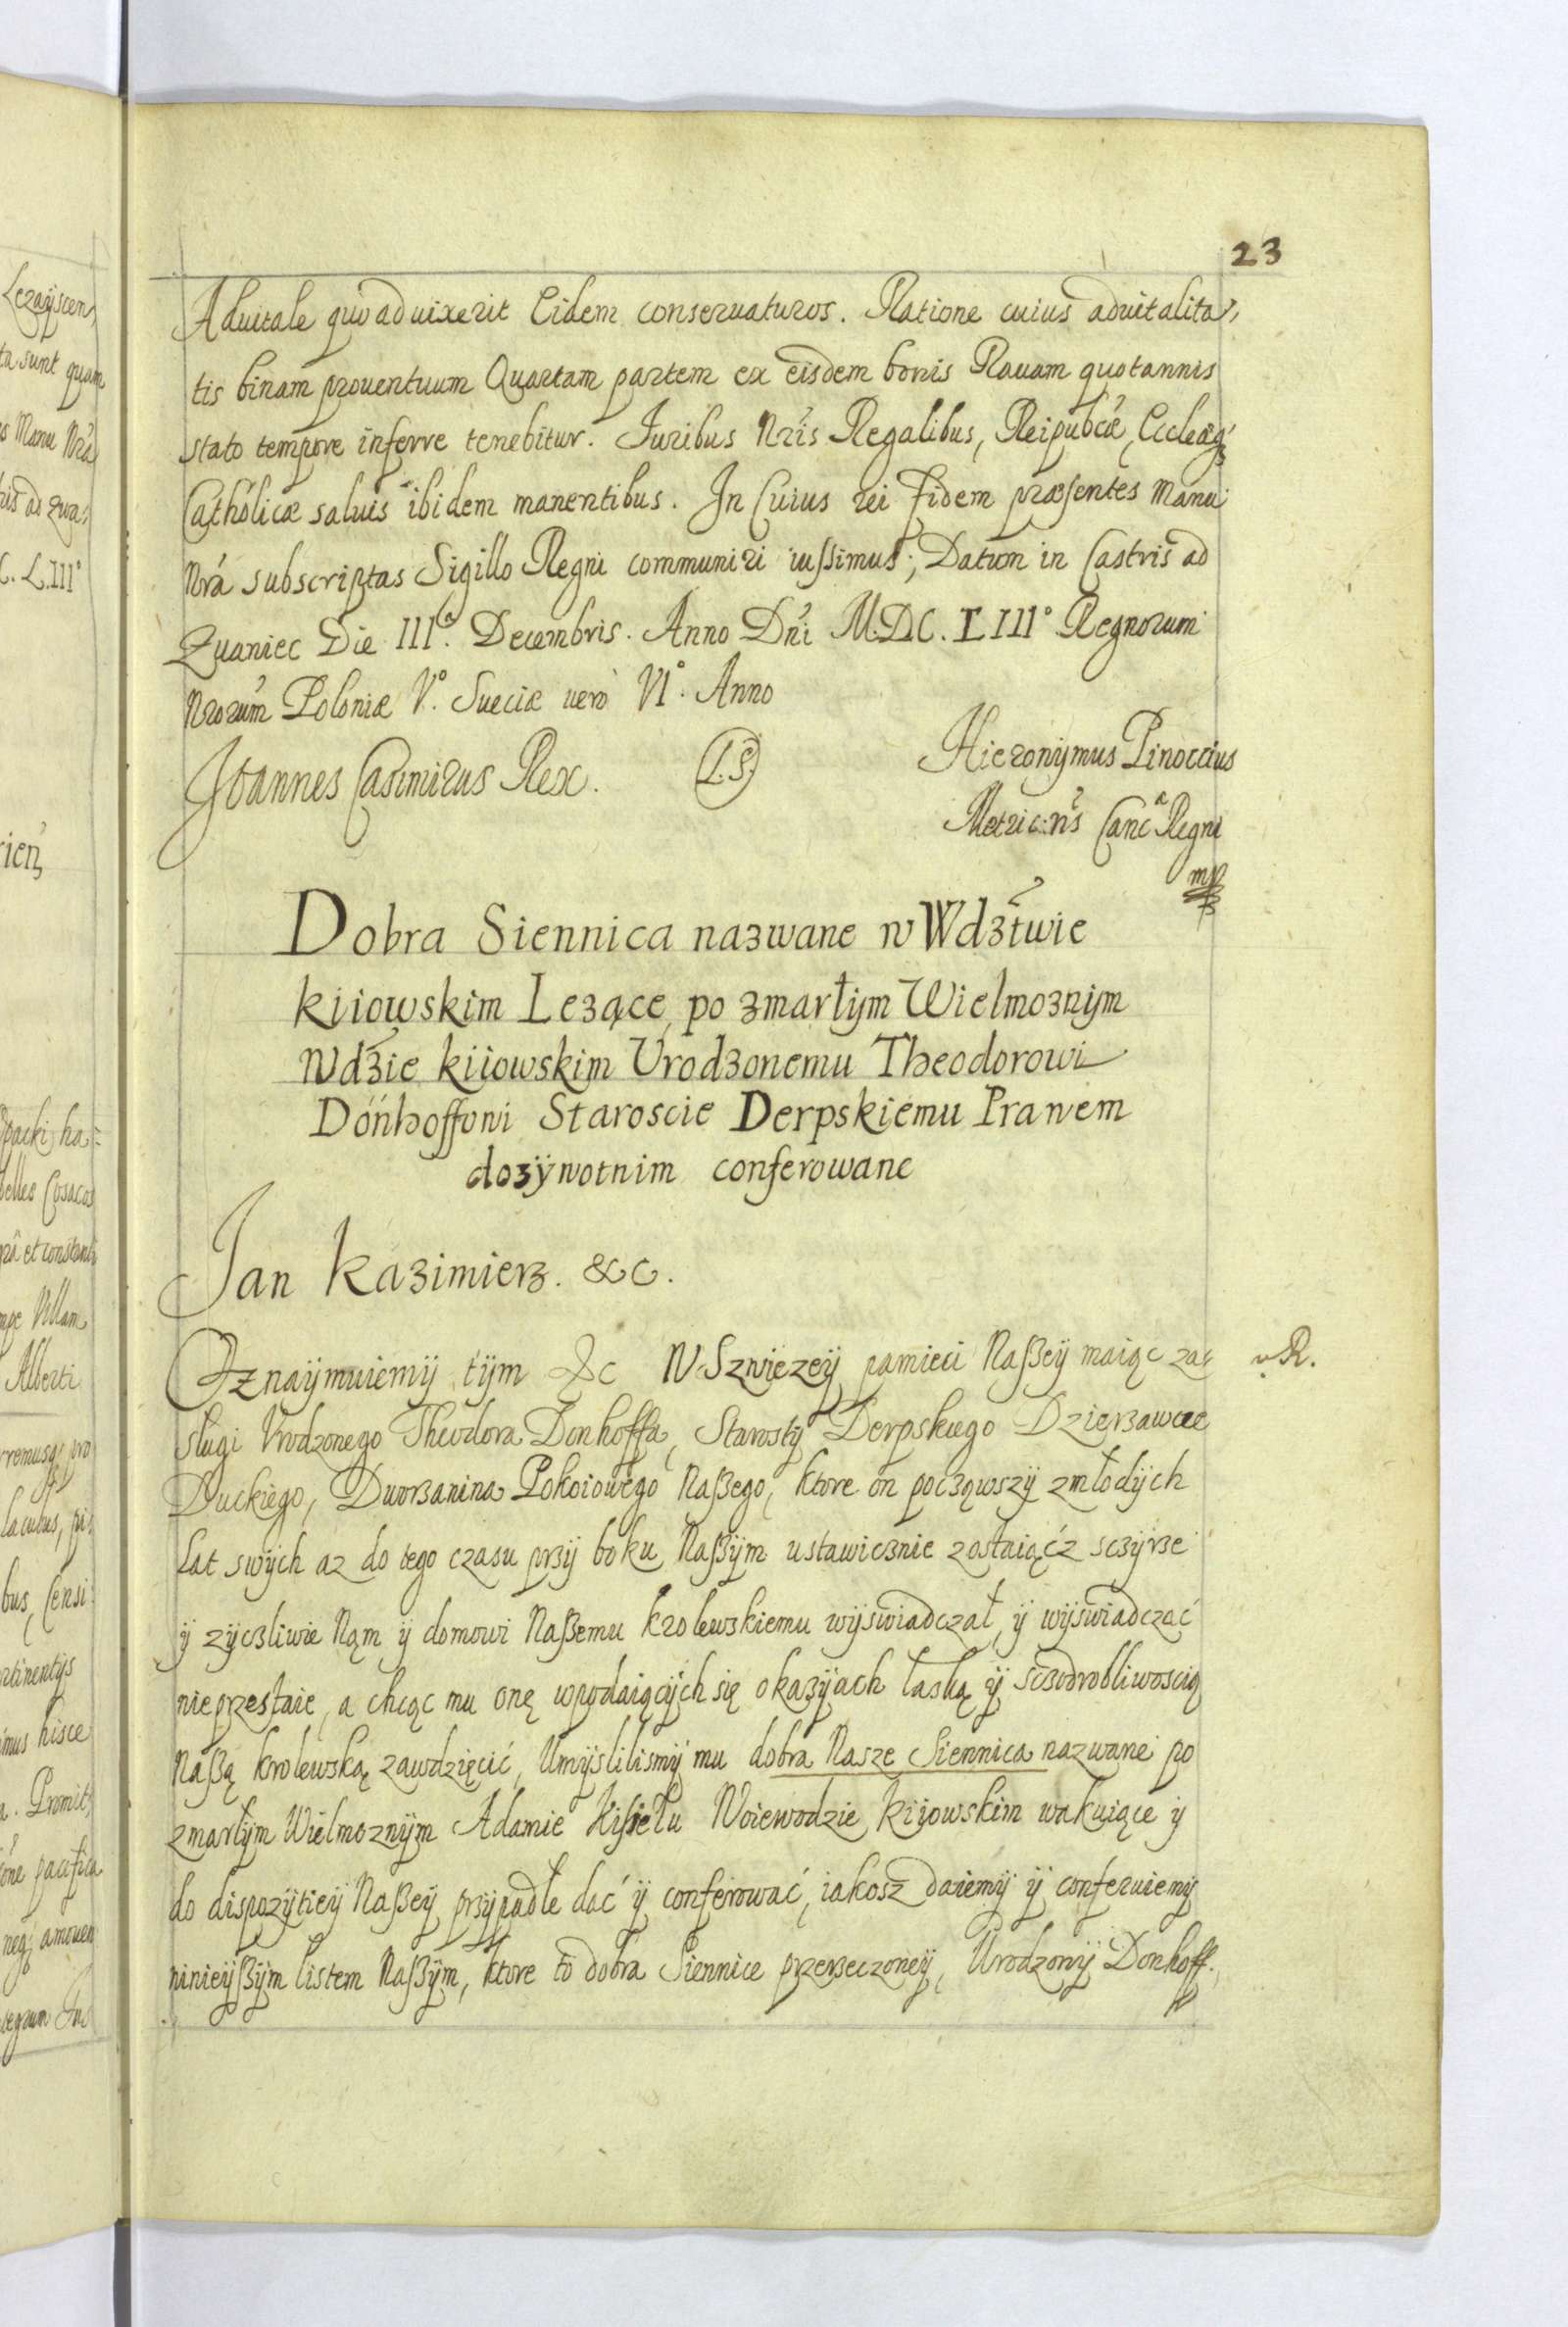 23
Aduitale quo ad uixerit Eidem conseruaturos. Ratione cuius aduitalita,
tis binam prouentuum Quartam partem ex eisdem bonis Rauam quotannis
stato tempore inferre tenebitur. Juribus Nris Regalibus, Reipubcæ, Ecclæq
Catholicæ saluis ibidem manentibus. In Cuius rei fidem præsentes Manu
Nra subscriptas Sigillo Regni communiri iussimus; Datum in Castris ad
Zuaniec Die III. Decembris. Anno Dni M.D.C.LIII° Regnorum
Nrorum Poloniæ V°. Sueciæ uero VI°. Anno
Joannes Casimirus Rex. (L.S.) Hieronymus Pinoccius
Metric: ns Canc Regni
mp
Dobra Siennica nazwane w Wdztwie
kiiowskim Lezące, po zmarłym Wielmoznym
Wdzie kiiowskim Vrodzonemu Theodorowi
Dónhoffowi Staroscie Derpskiemu Prawem
dozywotnim conferowane
Jan Kazimierz. &c.
Oznaÿmuiemÿ tÿm &c W Szwiezeÿ pamieci Naßeÿ maiąc za- R.
sługi Vrodzonego Theodora Donhoffa, Starostÿ Derpskiego Dzierzawce
Duckiego, Dworzanina Pokoiowego Naßego, ktore on począwszÿ zmłodÿch
Lat swÿch az do tego czasu przÿ boku Naßÿm ustawicznie zostaiącz sczÿrze
ÿ zÿczliwie Nąm ÿ domowi Naßemu krolewskiemu wÿswiadczał, ÿ wÿswiadczać
nieprzestaie, a chcąc mu onę wpodaiącÿch się okazÿach łaską ÿ sczodrobliwoscią
Naßą krolewską zawdzięcić, Umÿslilismÿ mu dobra Nasze Siennica nazwane po
zmarłÿm Wielmoznÿm Adamie Kisielu Woiewodzie kiiowskim wakuiące ÿ
do dispozÿtieÿ Naßeÿ przÿpadłe dać ÿ conferować, iakosz daiemÿ ÿ conferuiemÿ
ninieÿßÿm listem Naßÿm, ktore to dobra Siennice przerzeczoneÿ, Urodzonÿ Donhoff.